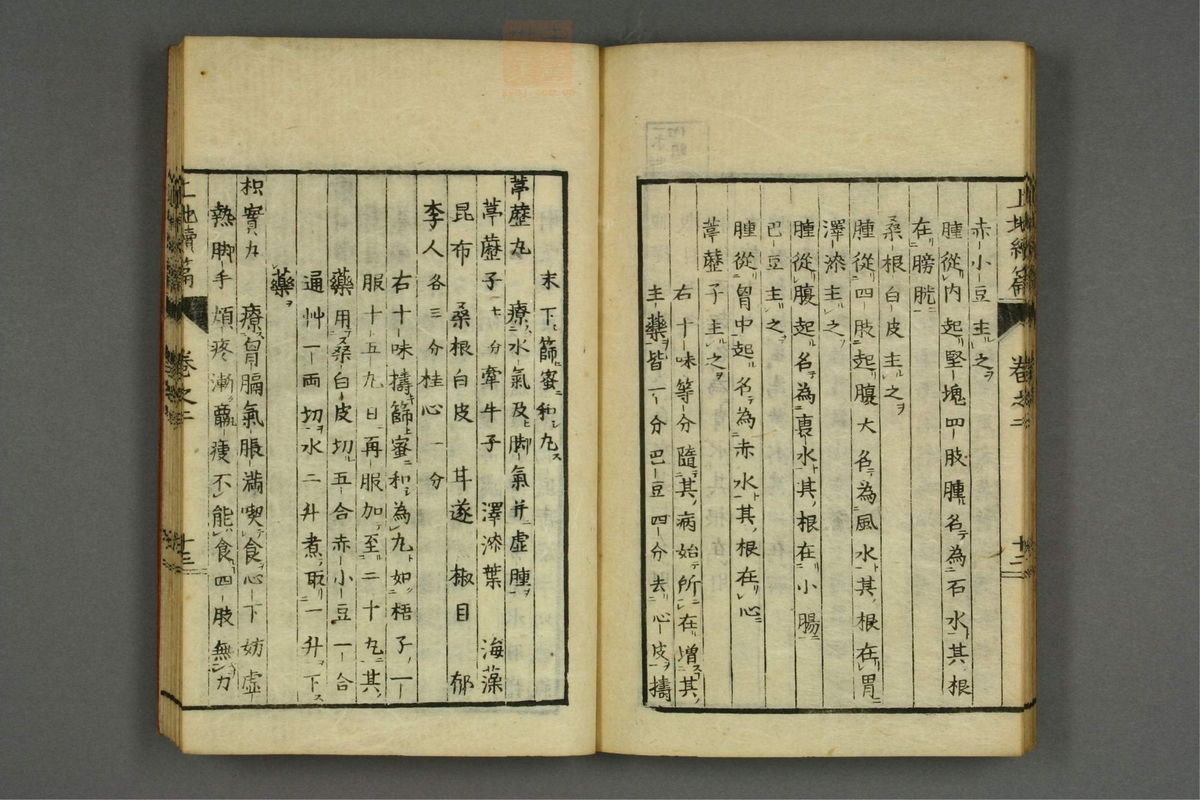 赤小豆主之
腫從内起堅塊四肢腫名為石水其根
在膀胱
桑根白皮主之
腫從四肢起腹大名為風水其根在胃
澤漆主之
腫從腹起名為裏水其根在小腸
巴豆主之
腫從胷中起名為赤水其根在心
葶藶子主之
右十味等分隨其病始所在增其
主藥皆一分巴豆四分去心皮擣
卷之二
十二
末下篩蜜和丸
葶藶丸 療水氣及脚氣并虚腫
葶藶子七分牽牛子 澤漆葉 海藻
昆布 桑根白皮 甘遂 椒目 郁
李人各三分桂心一分
右十味擣篩蜜和為丸如梧子一
服十五丸日再服加至二十丸其
藥用桑白皮切五合赤小豆一合
通艸一両切水二升煮取一升下
藥
枳實丸 療胷膈氣脹満喫食心下妨虚
熱脚手煩疼漸羸瘦不能食四肢無力
卷之二
十三